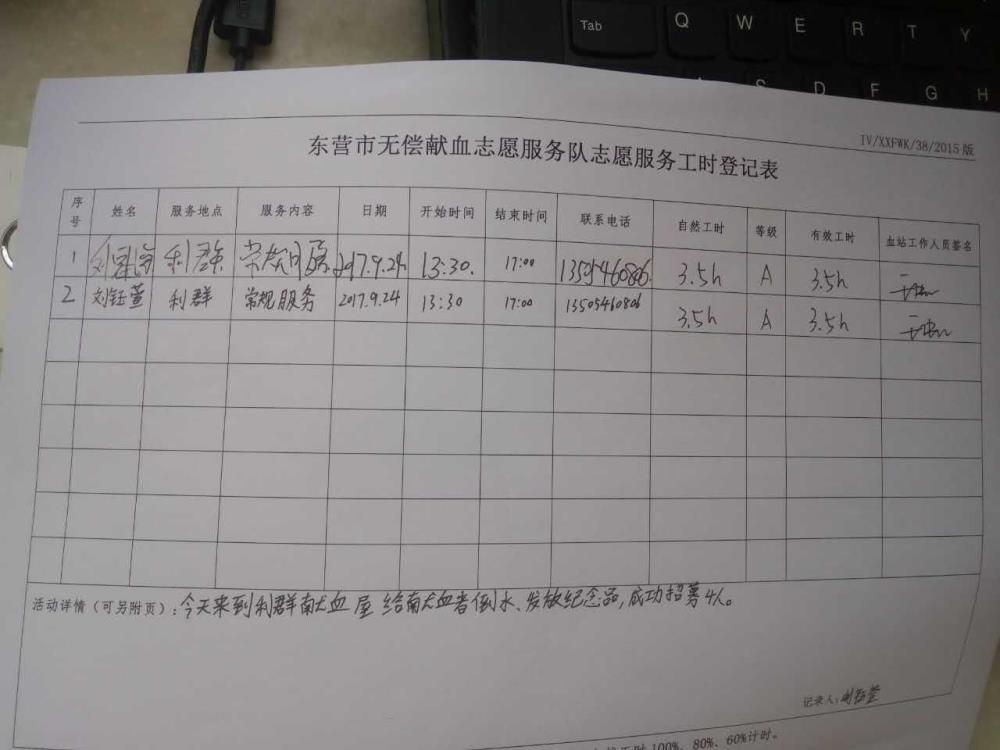 Tab Q W E R T Y
S D F G H
IV/XXFWK/38/2015版
东营市无偿献血志愿服务队志愿服务工时登记表
序号 姓名 服务地点 服务内容 日期 开始时间 结束时间 联系电话 自然工时 等级 有效工时 血站工作人员签名
1 利群 2017.9.24 13:30. 17:00 13505460806 3.5h A 3.5h
2 刘钰萱 利群 常规服务 2017.9.24 13:30 17:00 13505460806 3.5h A 3.5h
活动详情（可另附页）：今天来到利群献血屋 给献血者倒水、发放纪念品,成功招募4人。
记录人：刘钰萱
100%、80%、60%计时。